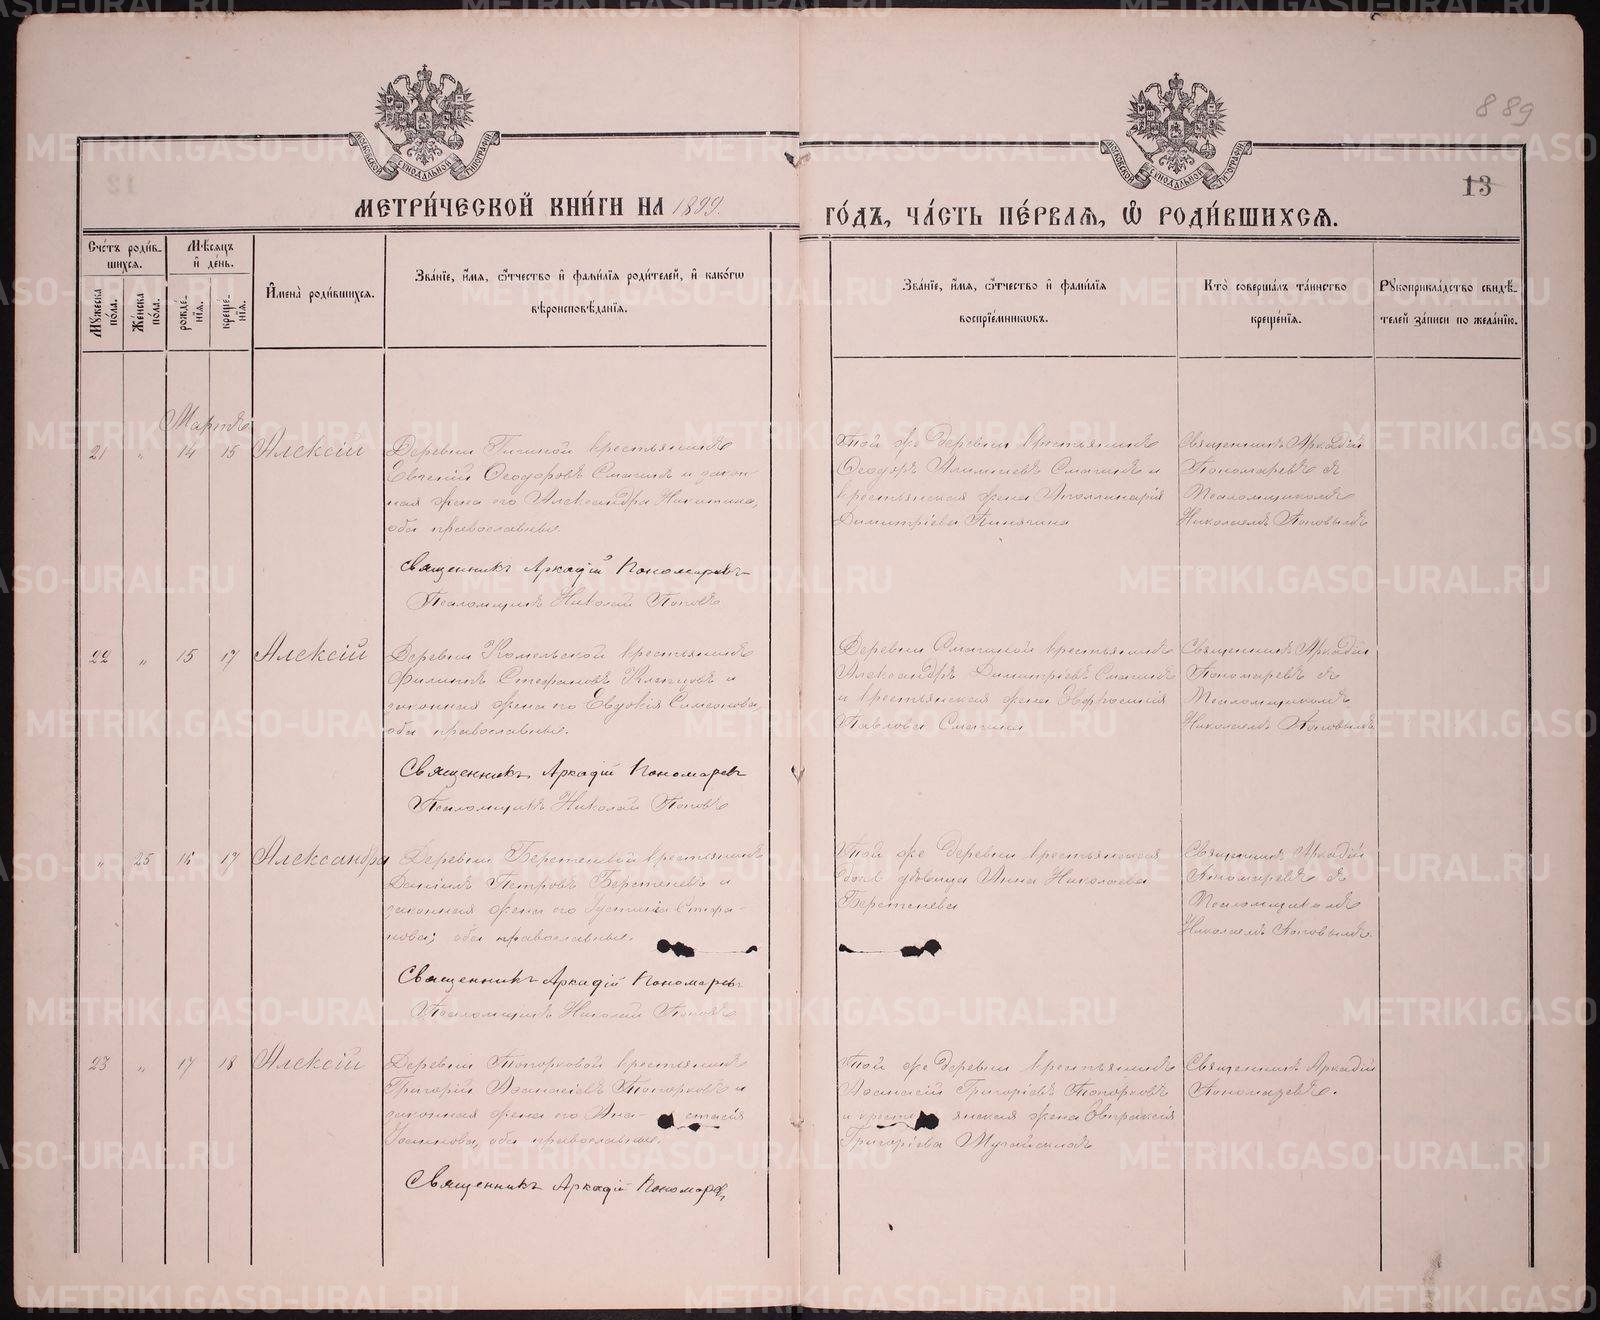 889
13
МЕТРИ́ЧЕСКОЙ КНИ́ГИ НА 1899.
ГО́ДЪ, ЧА́СТЬ ПЕ́РВАѦ, Ѿ РОДИ́ВШИХСѦ.
Сче́тъ роди́в-
шихсѧ.
Мѣ́сѧцъ
и҆ де́нь.
Мꙋ́жеска
по́ла.
Же́нска
по́ла.
рожде́-
нїѧ.
креще́-
нїѧ.
И҆мена̀ роди́вшихсѧ.
Зва́нїе, и҆́мѧ, ѻ҆́тчество и҆ фами́лїѧ роди́телей, и҆ како́гѡ
вѣроисповѣ́данїѧ.
Зва́нїе, и҆́мѧ, ѻ҆́тчество и҆ фами́лїѧ
воспрїе́мникѡвъ.
Кто̀ соверша́лъ та́инство
креще́нїѧ.
Рꙋкоприкла́дство свидѣ́-
телей за́писи по жела́нїю.
Мартъ
21 " 14 15 Алексій
Деревни крестьянинъ
Евгеній Ѳеодоровъ Смагинъ и закон-
ная жена его Александра Никитина,
оба православные.
Священникъ Аркадій Пономаревъ
Псаломщикъ Николай Поповъ
Той же деревни крестьянинъ
Ѳеодоръ Смагинъ и
крестьянская жена Аполлинарія
Димитріева
Священникъ Аркадій
Пономаревъ съ
Псаломщикомъ
Николаемъ Поповымъ
22 " 15 17 Алексій
Деревни крестьянинъ
Филиппъ Стефановъ и
законная жена его Евдокія Симеонова,
оба православные.
Священникъ Аркадій Пономаревъ
Псаломщикъ Николай Поповъ
Деревни Смагиной крестьянинъ
Александръ Димитріевъ Смагинъ
и крестьянская жена Евфросинія
Павлова Смагина
Священникъ Аркадій
Пономаревъ съ
Псаломщикомъ
Николаемъ Поповымъ
" 25 16 17 Александра
Деревни Берстеневой крестьянинъ
Даніилъ Петровъ Берстеневъ и
законная жена его Іустина Стефа-
нова; оба православные.
Священникъ Аркадій Пономаревъ
Псаломщикъ Николай Поповъ
Той же деревни крестьянская
вдова Анна Николаева
Берстенева
Священникъ Аркадій
Пономаревъ съ
Псаломщикомъ
Николаемъ Поповымъ
23 " 17 18 Алексій
Деревни Топорковой крестьянинъ
Григорій Аѳанасіевъ Топорковъ и
законная жена его Ана- стасія
Іоаннова, оба православные.
Священникъ Аркадій Пономаревъ
Той же деревни крестьянинъ
Аѳанасій Григоріевъ Топорковъ
и крестьянская жена Евпраксія
Григоріева
Священникъ Аркадій
Пономаревъ.
METRIKI.GASO-URAL.RU